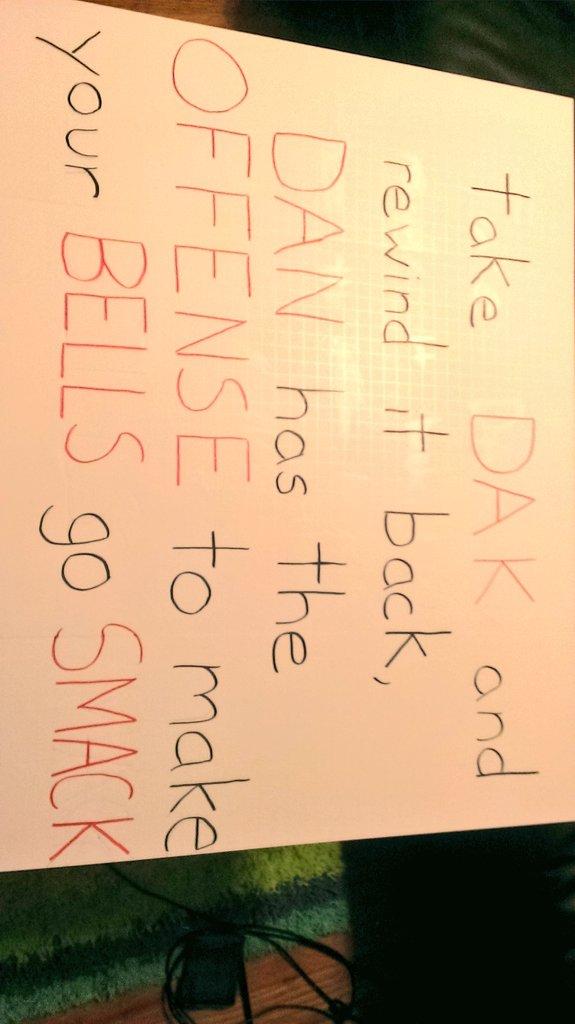 take DAK and
rewind it back,
DAN has the
OFFENSE to make
your BELLS go SMACK